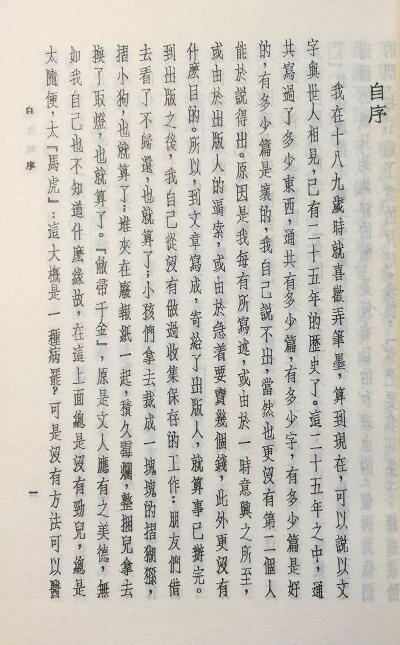 自序
我在十八九歲時就喜歡弄筆墨，算到現在，可以說以文
字與世人相見，已有二十五年的歷史了。這二十五年之中，通
共寫過了多少東西，通共有多少篇，有多少字，有多少篇是好
的，有多少篇是壞的，我自己說不出，當然也更沒有第二個人
能於說得出。原因是我每有所寫述，或由於一時意興之所至，
或由於出版人的逼索，或由於急着要賣幾個錢，此外更沒有
什麽目的。所以，到文章寫成，寄給了出版人，就算事已辦完。
到出版之後，我自己從沒有做過收集保存的工作：朋友們借
去看了不歸還，也就算了；小孩們拿去裁成一塊塊的摺猢猻，
摺小狗，也就算了；堆夾在廢報紙一起，積久霉爛，整捆兒拿去
換了取燈，也就算了。『敝帚千金』，原是文人應有之美德，無
如我自己也不知道什麽緣故，在這上面總是沒有勁兒，總是
太隨便，太『馬虎』：這大概是一種病罷？可是沒有方法可以醫
自
序
一